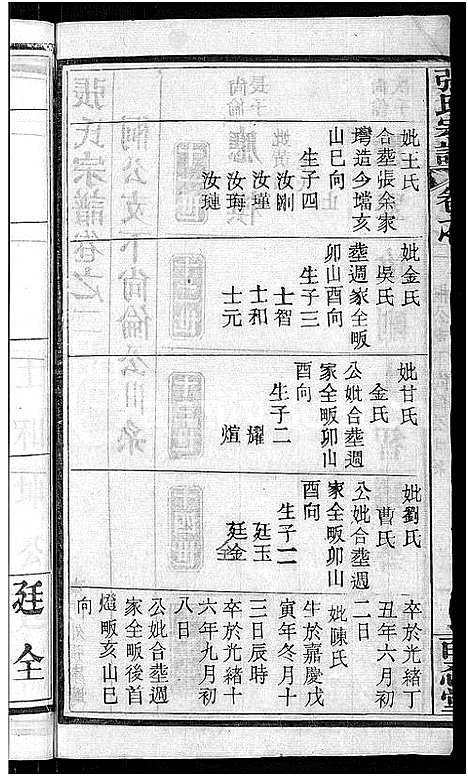 張氏宗譜
妣王氏
合塟張余家
塆造夕壋亥
山巳向
生子四
汝剛
汝瑾
汝珻
汝璉
妣金氏
吳氏
塟週家全畈
卯山酉向
生子三
士智
士和
士元
妣甘氏
金氏
公妣合塟週
家全畈卯山
酉向
生子二
耀
煊
妣劉氏
曹氏
公妣合塟週
家全畈卯山
酉向
生子二
廷玉
廷金
卒於光緒丁
丑年六月初
二日
妣陳氏
生於嘉慶戊
寅年冬月十
三日辰時
卒於光緒十
六年九月初
八日
公妣合塟週
家全畈後首
畈亥山巳
向
廷全